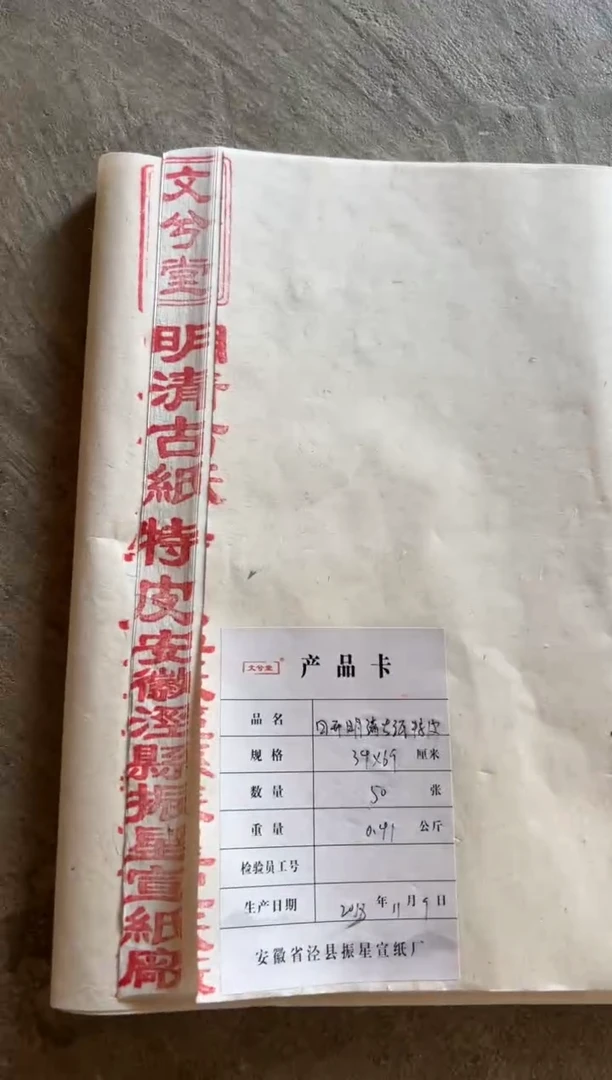 文兮堂
明清古紙特皮安徽涇縣振星宣紙廠
文兮堂
产品卡
品名 四开明清古纸特皮
规格 39×69 厘米
数量 50 张
重量 0.91 公斤
检验员工号
生产日期 2013 年 11 月 9 日
安徽省泾县振星宣纸厂